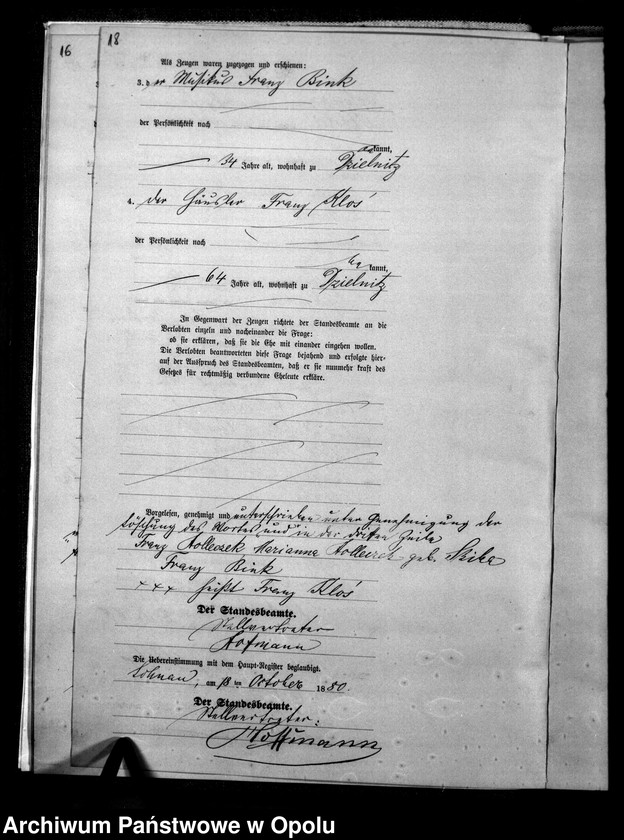 16
18
Als Zeugen waren zugezogen und erschienen:
3. der Musikus Franz Bink
der Persönlichkeit nach
kannt,
34 Jahre alt, wohnhaft zu Dzielnitz
4. der Häusler Franz Klos
der Persönlichkeit nach
kannt,
64 Jahre alt, wohnhaft zu Dzielnitz
In Gegenwart der Zeugen richtete der Standesbeamte an die
Verlobten einzeln und nacheinander die Frage:
ob sie erklären, daß sie die Ehe mit einander eingehen wollen.
Die Verlobten beantworteten diese Frage bejahend und erfolgte hier-
auf der Ausspruch des Standesbeamten, daß er sie nunmehr kraft des
Gesetzes für rechtmäßig verbundene Eheleute erkläre.
Vorgelesen, genehmigt und unterschrieben unter Genehmigung der
Löschung des Wortes und in der dritten Zeile
Franz Kolleczek Marianna Kolleczek geb. Skiba
Franz Bink
+++ heißt Franz Klos
Der Standesbeamte.
Stellvertreter
Hofmann
Die Uebereinstimmung mit dem Haupt-Register beglaubigt.
am 13ten October 1880.
Der Standesbeamte.
Stellvertreter:
Hoffmann
Archiwum Państwowe w Opolu